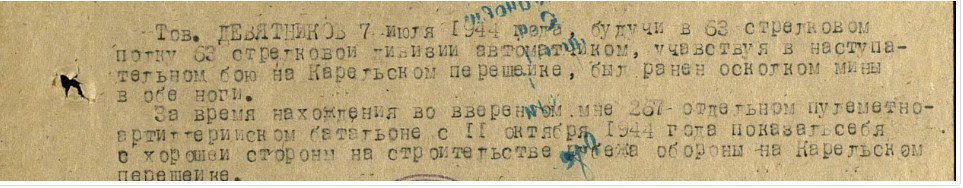 Тов. ДЕВЯТНИКОВ 7 июля 1944 года, будучи в 63 стрелковом
полку 63 стрелковой дивизии автоматчиком, учавствуя в наступа-
тельном бою на Карельском перешейке, был ранен осколком мины
в обе ноги.
За время нахождения во вверенном мне 267 отдельном пулеметно-
артиллерийском батальоне с 11 октября 1944 года показал себя
с хорошей стороны на строительстве обороны на Карельском
перешейке.